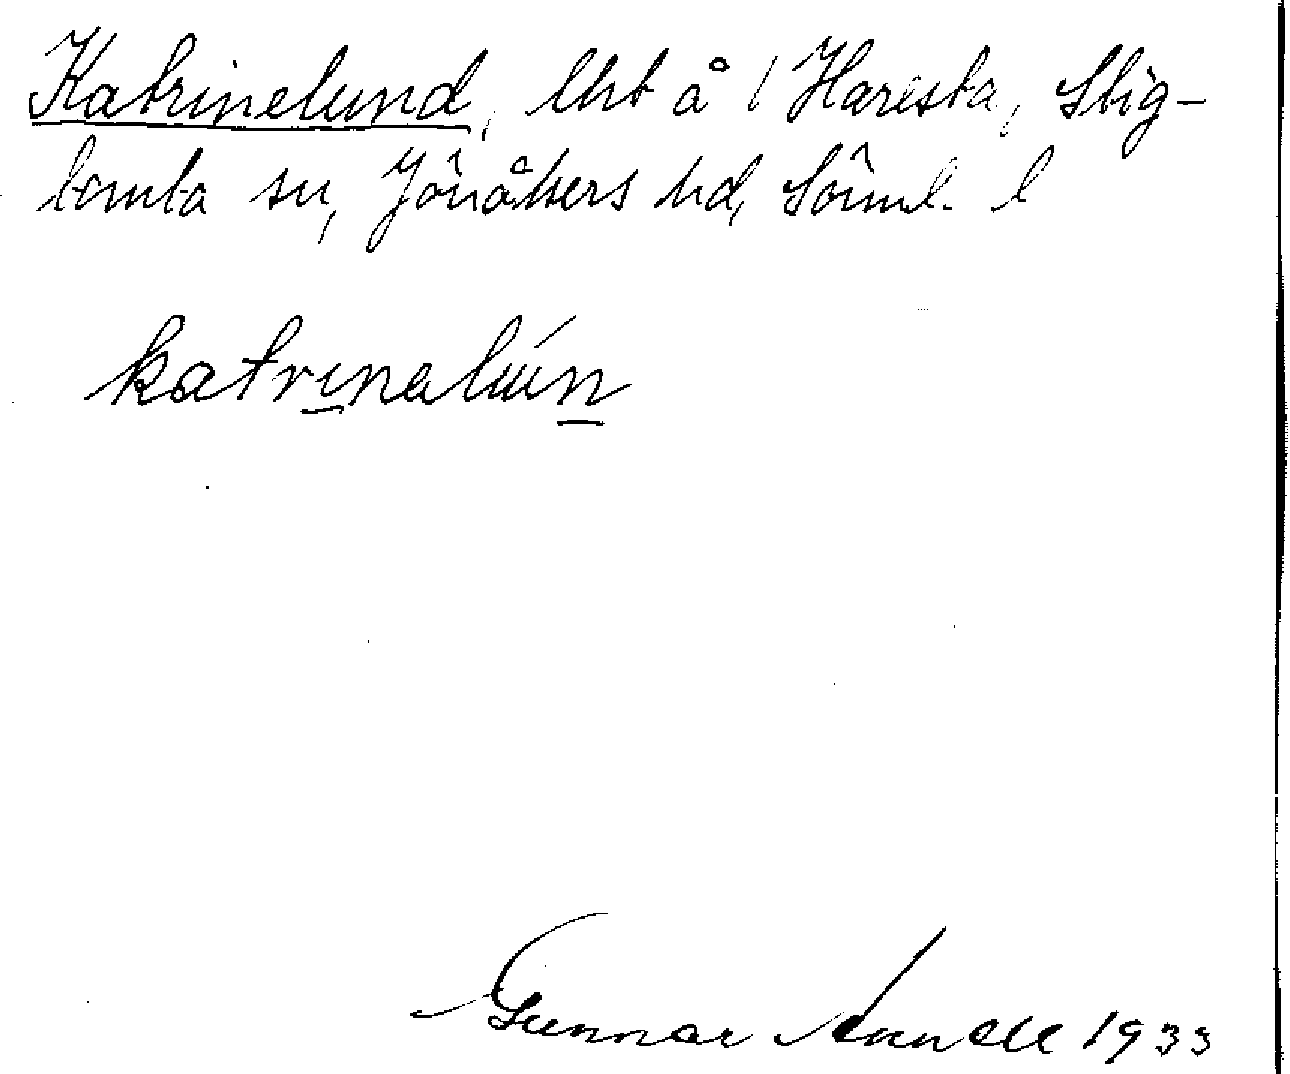 Katrinelund, lht å 1 Haresta, Stig-
tomta sn, Jönåkers hd, Söml. l
katrinalún
Gunnar 1933